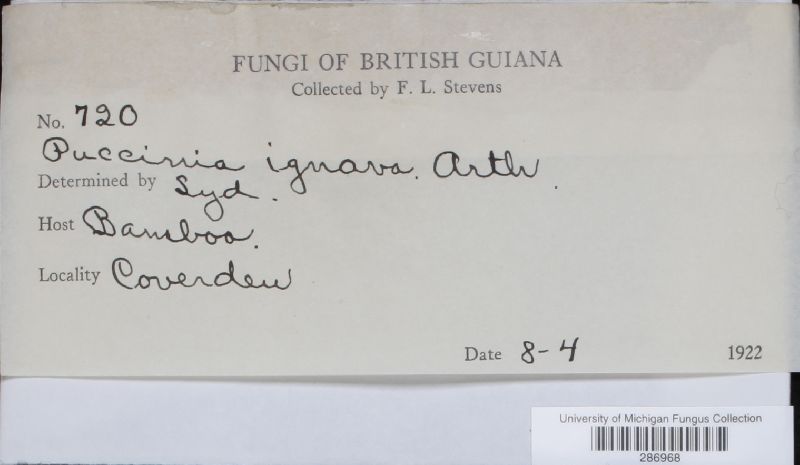 FUNGI OF BRITISH GUIANA
Collected by F. L. Stevens
No. 720
Puccinia ignava. Arth.
Determined by Syd.
Host Bamboo.
Locality Coverden
Date 8-4 1922
University of Michigan Fungus Collection
286968